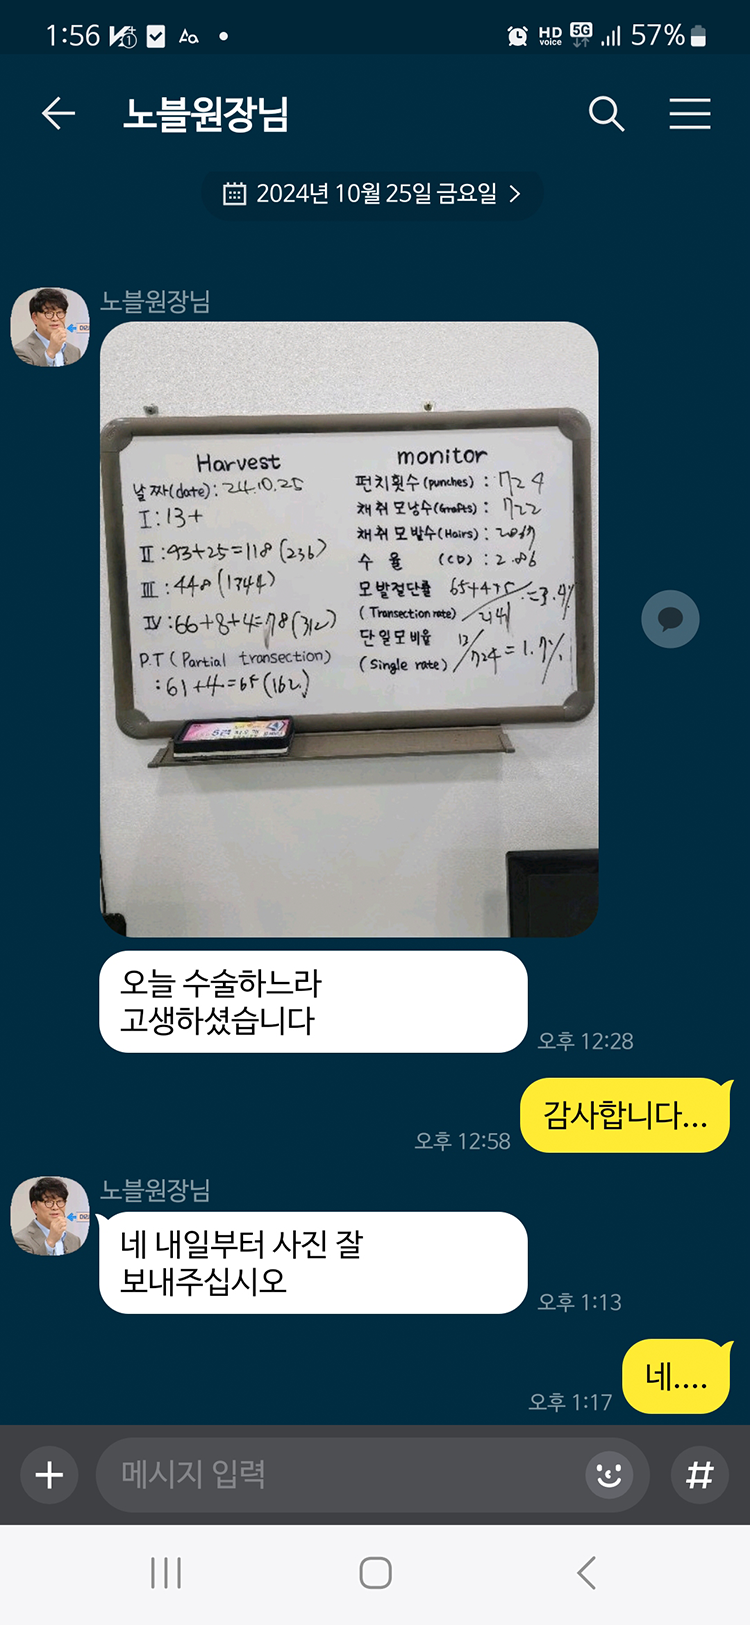 1:56
HD voice 5G 57%
노블원장님
2024년 10월 25일 금요일
노블원장님
Harvest
날짜(date): 24.10.25
I : 13+
II : 93+25=118(236)
III : 448(1344)
IV : 66+8+4=78(312)
P.T (Partial transection)
: 61+4=65(162)
monitor
펀치횟수(punches) : 724
채취모낭수(Grafts) : 722
채취모발수(Hairs) : 2067
수율 (CD) : 2.86
모발절단률 65+ =3.4%
(Transection rate)
단일모비율 13/724=1.7%
(Single rate)
오늘 수술하느라
고생하셨습니다
오후 12:28
감사합니다...
오후 12:58
노블원장님
네 내일부터 사진 잘
보내주십시오
오후 1:13
네....
오후 1:17
메시지 입력
#